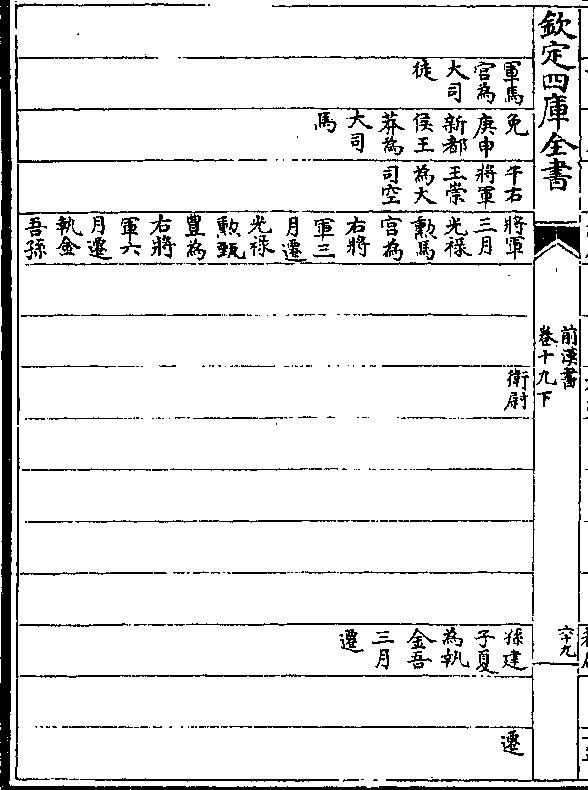 欽定四庫全書
前漢書
卷十九下
六十九
軍馬
官為
大司
徒
免
庚申
新都
侯王
莽為
大司
馬
午右
將軍
王崇
為大
司空
將軍
三月
光祿
勲馬
官為
右將
軍三
月遷
光祿
勲甄
豐為
右將
軍六
月遷
執金
吾孫
衛尉
孫建
子夏
為執
金吾
三月
遷
遷